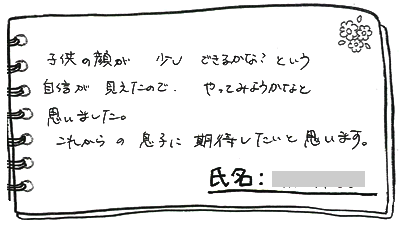 子供の顔が 少し できるかな？という
自信が 見えたので、 やってみようかなと
思いました。
これからの 息子に 期待したいと思います。
氏名：